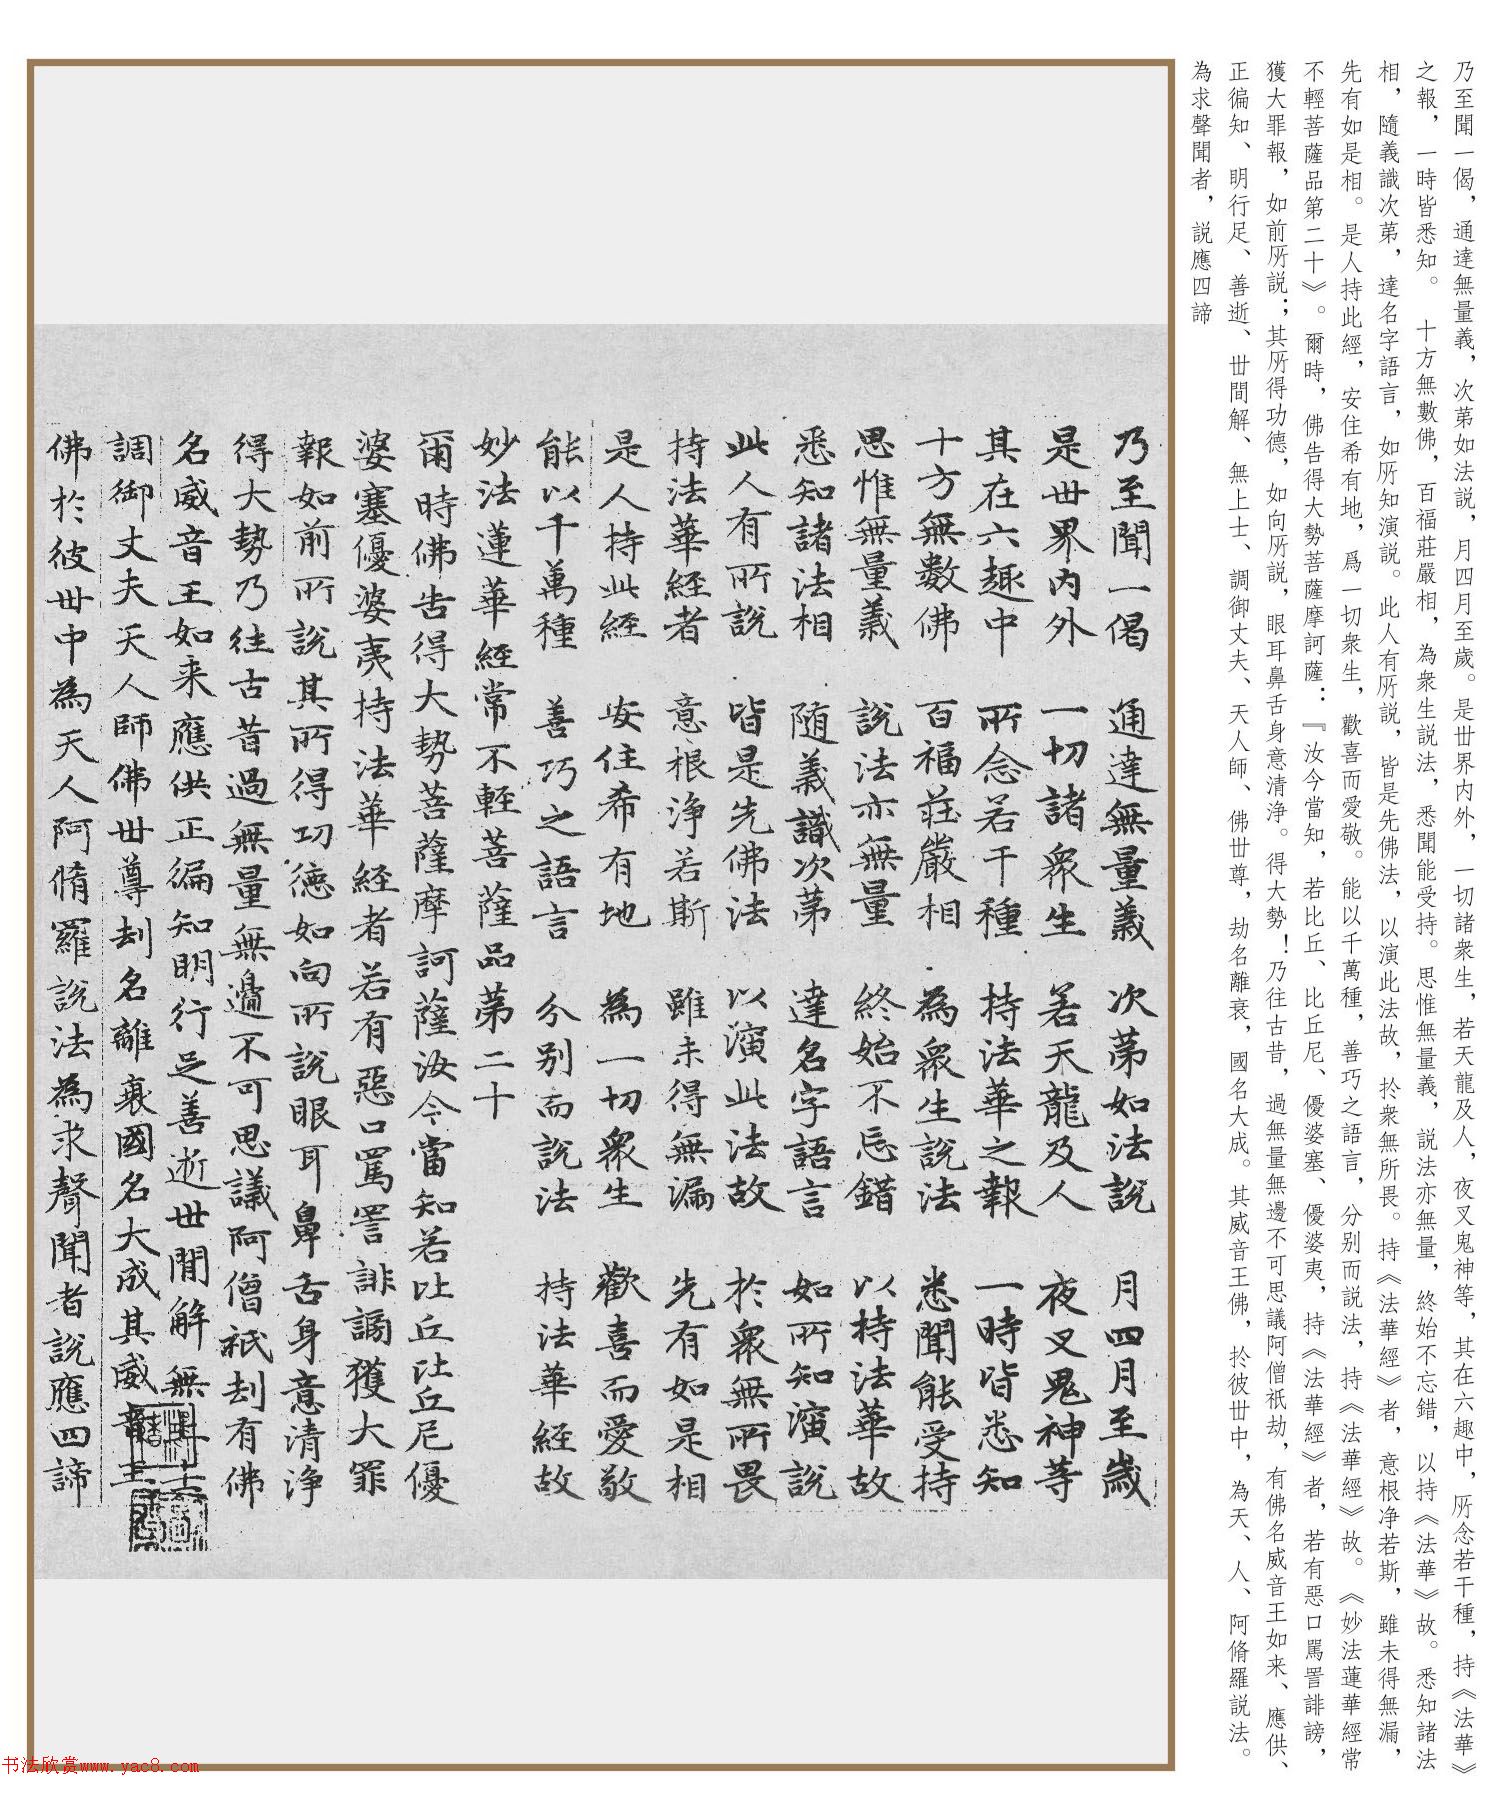 乃至聞一偈，通達無量義，次第如法説，月四月至歲。是世界内外，一切諸衆生，若天龍及人，夜叉鬼神等，其在六趣中，所念若干種，持《法華》
之報，一時皆悉知。　十方無數佛，百福莊嚴相，為衆生説法，悉聞能受持。思惟無量義，説法亦無量，終始不忘錯，以持《法華》故。悉知諸法
相，隨義識次第，達名字語言，如所知演説。此人有所説，皆是先佛法，以演此法故，扵衆無所畏。持《法華經》者，意根净若斯，雖未得無漏，
先有如是相。是人持此經，安住希有地，爲一切衆生，歡喜而愛敬。能以千萬種，善巧之語言，分别而説法，持《法華經》故。《妙法蓮華經常
不輕菩薩品第二十》。爾時，佛告得大勢菩薩摩訶薩：『汝今當知，若比丘、比丘尼、優婆塞、優婆夷，持《法華經》者，若有惡口駡詈誹謗，
獲大罪報，如前所説；其所得功德，如向所説，眼耳鼻舌身意清净。得大勢！乃往古昔，過無量無邊不可思議阿僧祇劫，有佛名威音王如来、應供、
正徧知、明行足、善逝、世間解、無上士、調御丈夫、天人師、佛世尊，劫名離衰，國名大成。其威音王佛，扵彼世中，為天、人、阿脩羅説法。
為求聲聞者，説應四諦
乃至聞一偈　通達無量義　次第如法說　月四月至歲
是世界内外　一切諸衆生　若天龍及人　夜叉鬼神等
其在六趣中　所念若干種　持法華之報　一時皆悉知
十方無數佛　百福莊嚴相　為衆生說法　悉聞能受持
思惟無量義　說法亦無量　終始不忘錯　以持法華故
悉知諸法相　随義識次第　達名字語言　如所知演說
此人有所說　皆是先佛法　以演此法故　扵衆無所畏
持法華經者　意根淨若斯　雖未得無漏　先有如是相
是人持此經　安住希有地　為一切衆生　歡喜而愛敬
能以千萬種　善巧之語言　分别而說法　持法華經故
妙法蓮華經常不輕菩薩品第二十
爾時佛告得大勢菩薩摩訶薩汝今當知若比丘比丘尼優
婆塞優婆夷持法華經者若有惡口罵詈誹謗獲大罪
報如前所說其所得功德如向所說眼耳鼻舌身意清淨
得大勢乃往古昔過無量無邊不可思議阿僧祇刦有佛
名威音王如来應供正徧知明行足善逝世間解無上士
調御丈夫天人師佛世尊刦名離衰國名大成其威音王
佛扵彼世中為天人阿脩羅說法為求聲聞者說應四諦
书法欣赏www.yac8.com